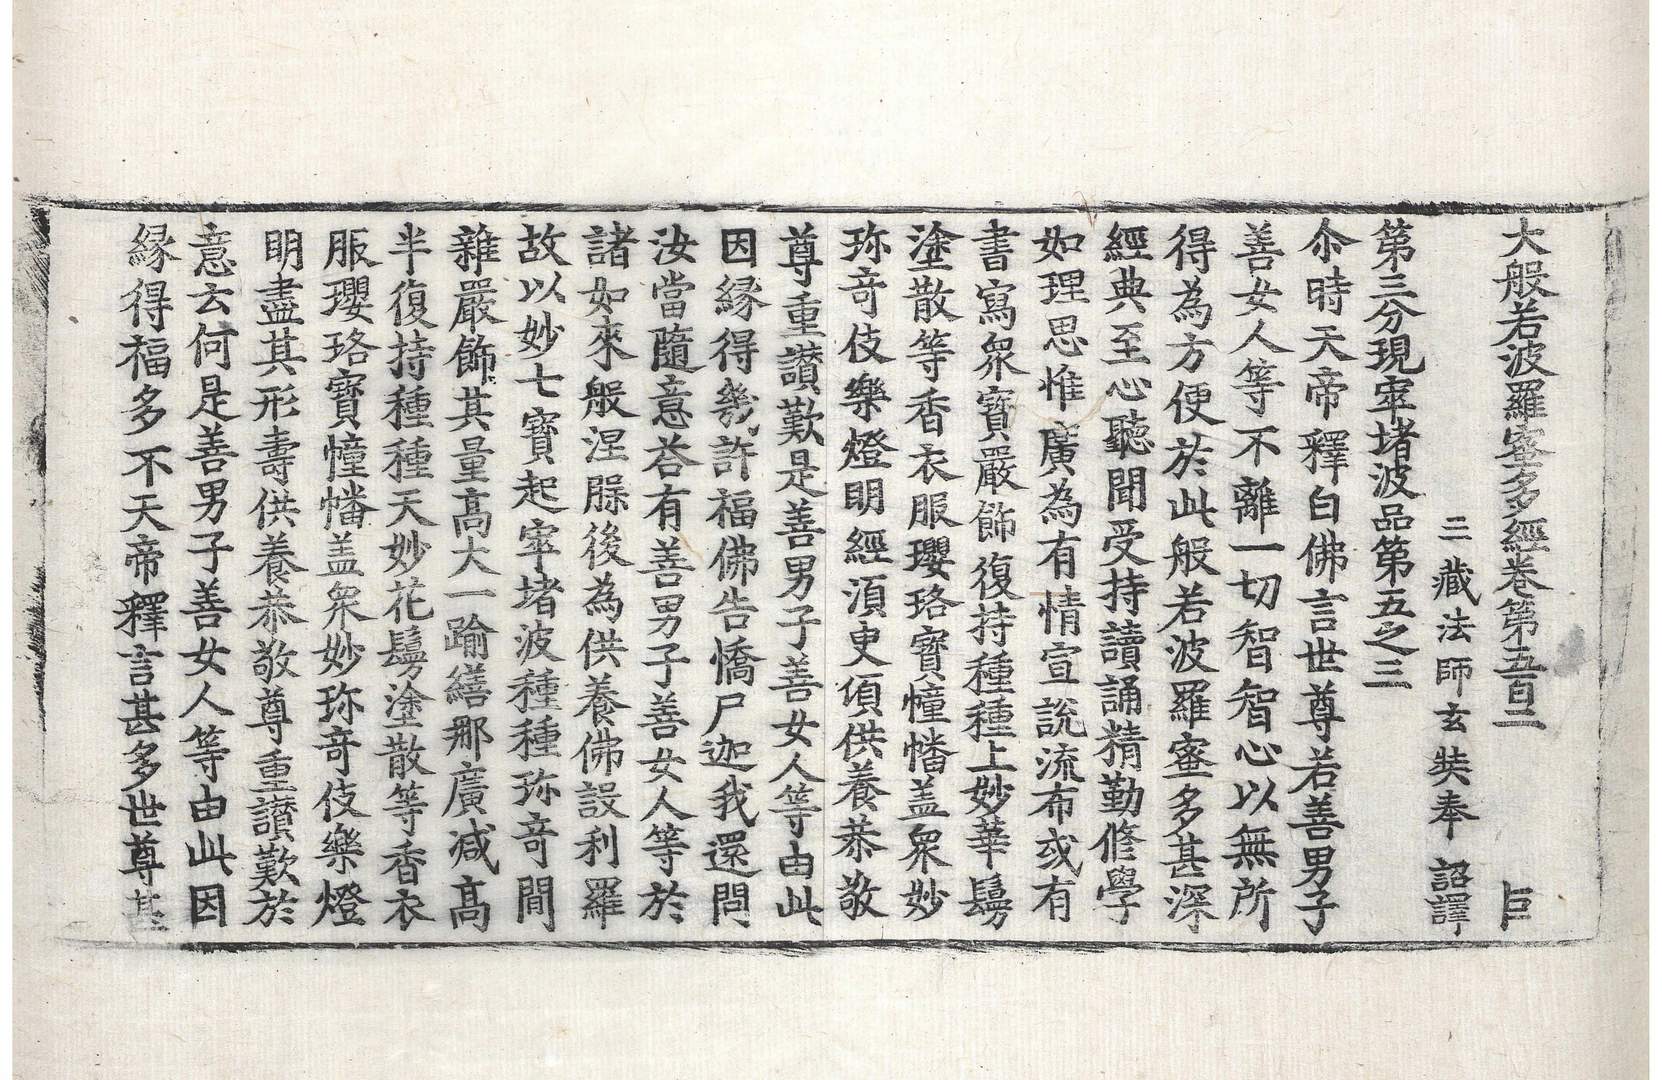 大般若波羅蜜多經卷第五百二 巨
三藏法師玄奘奉 詔譯
第三分現窣堵波品第五之三
尒時天帝釋白佛言世尊若善男子
善女人等不離一切智智心以無所
得為方便於此般若波羅蜜多甚深
經典至心聽聞受持讀誦精勤修學
如理思惟廣為有情宣說流布或有
書寫衆寶嚴飾復持種種上妙華鬘
塗散等香衣服瓔珞寶幢幡盖衆妙
珎竒伎樂燈明經湏臾頃供養恭敬
尊重讃歎是善男子善女人等由此
因縁得幾許福佛告憍尸迦我還問
汝當隨意荅有善男子善女人等於
諸如來般涅槃後為供養佛設利羅
故以妙七寶起窣堵波種種珎竒間
雜嚴飾其量高大一踰繕那廣減高
半復持種種天妙花鬘塗散等香衣
服瓔珞寶幢幡盖衆妙珎竒伎樂燈
明盡其形壽供養恭敬尊重讃歎於
意云何是善男子善女人等由此因
縁得福多不天帝釋言甚多世尊甚